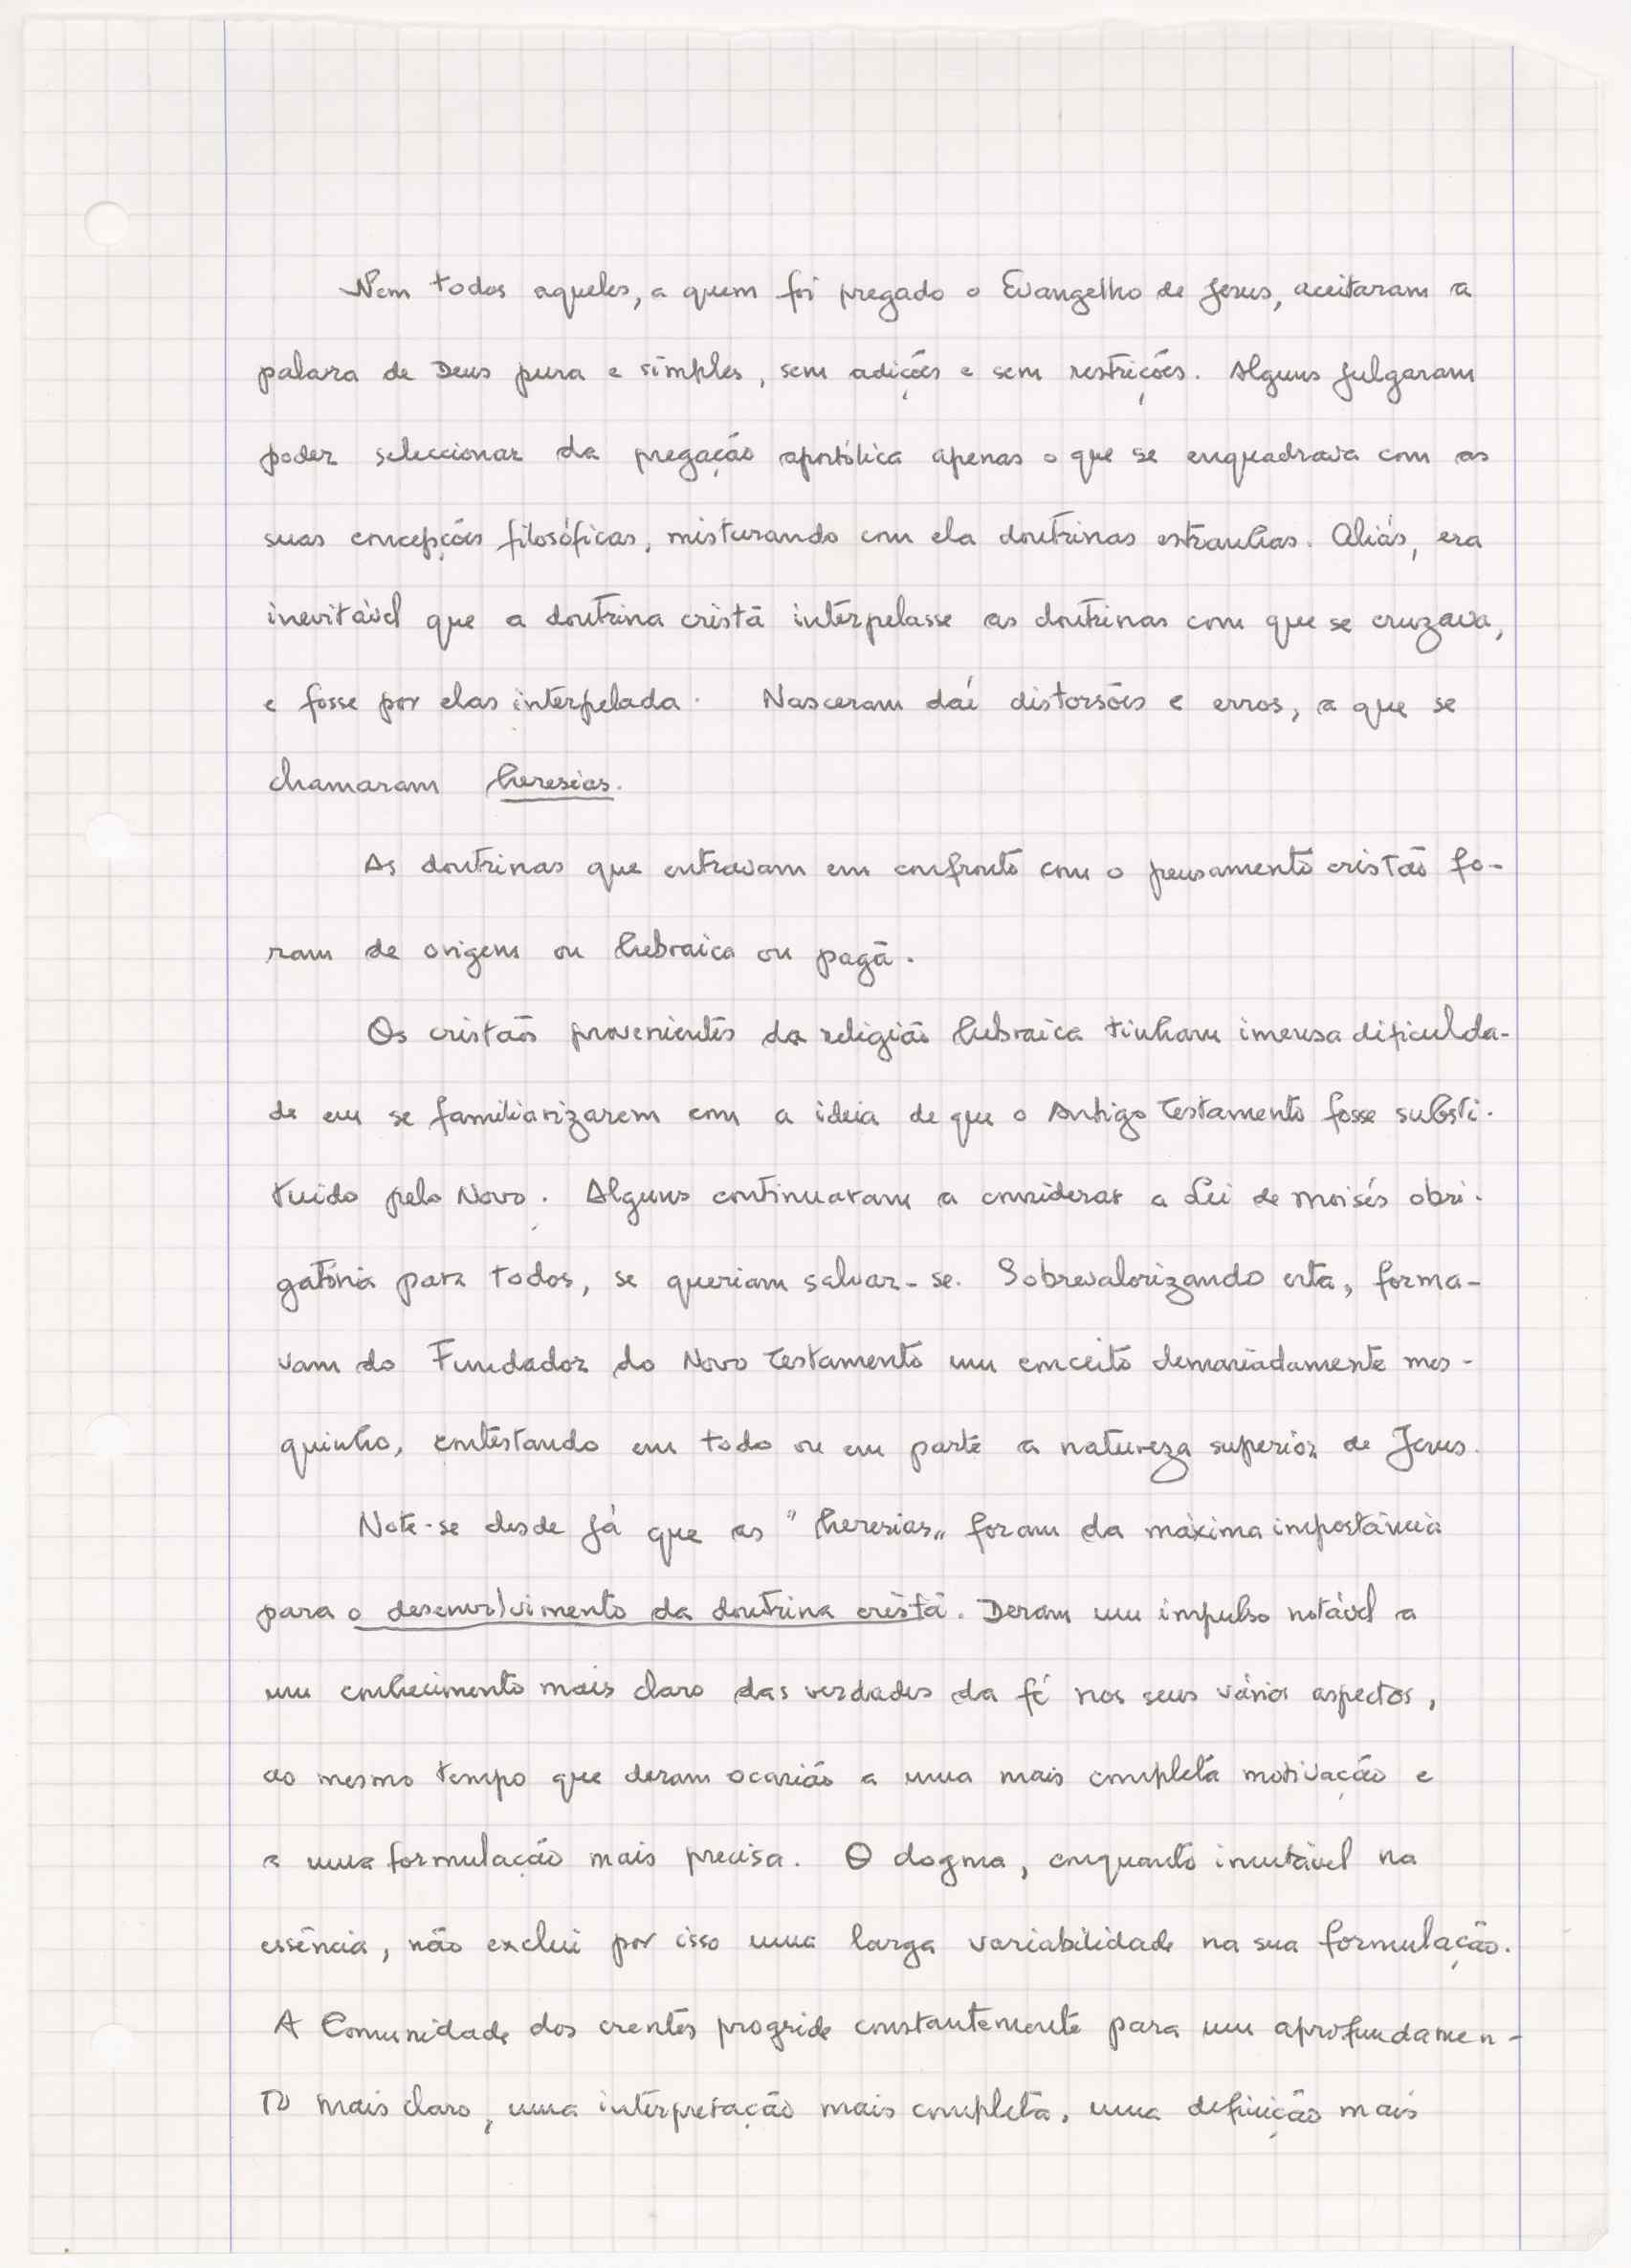 Nem todos aqueles, a quem foi pregado o Evangelho de Jesus, aceitaram a
palavra de Deus pura e simples, sem adições e sem restrições. Alguns julgaram
poder seleccionar da pregação apostólica apenas o que se enquadrava com as
suas concepções filosóficas, misturando com ela doutrinas estranhas. Aliás, era
inevitável que a doutrina cristã interpelasse as doutrinas com que se cruzava,
e fosse por elas interpelada. Nasceram daí distorsões e erros, a que se
chamaram heresias.
As doutrinas que entravam em confronto com o pensamento cristão fo-
ram de origem ou hebraica ou pagã.
Os cristãos provenientes da religião hebraica tinham imensa dificulda-
de em se familiarizarem com a ideia de que o Antigo Testamento fosse substi-
tuido pelo Novo. Alguns continuaram a considerar a Lei de Moisés obri-
gatória para todos, se queriam salvar-se. Sobrevalorizando esta, forma-
vam do Fundador do Novo Testamento um conceito demasiadamente mes-
quinho, contestando em todo ou em parte a natureza superior de Jesus.
Note-se desde já que as "heresias" foram da máxima importância
para o desenvolvimento da doutrina cristã. Deram um impulso notável a
um conhecimento mais claro das verdades da fé nos seus vários aspectos,
ao mesmo tempo que deram ocasião a uma mais completa motivação e
a uma formulação mais precisa. O dogma, enquanto imutável na
essência, não exclui por isso uma larga variabilidade na sua formulação.
A Comunidade dos crentes progride constantemente para um aprofundamen-
to mais claro, uma interpretação mais completa, uma definição mais